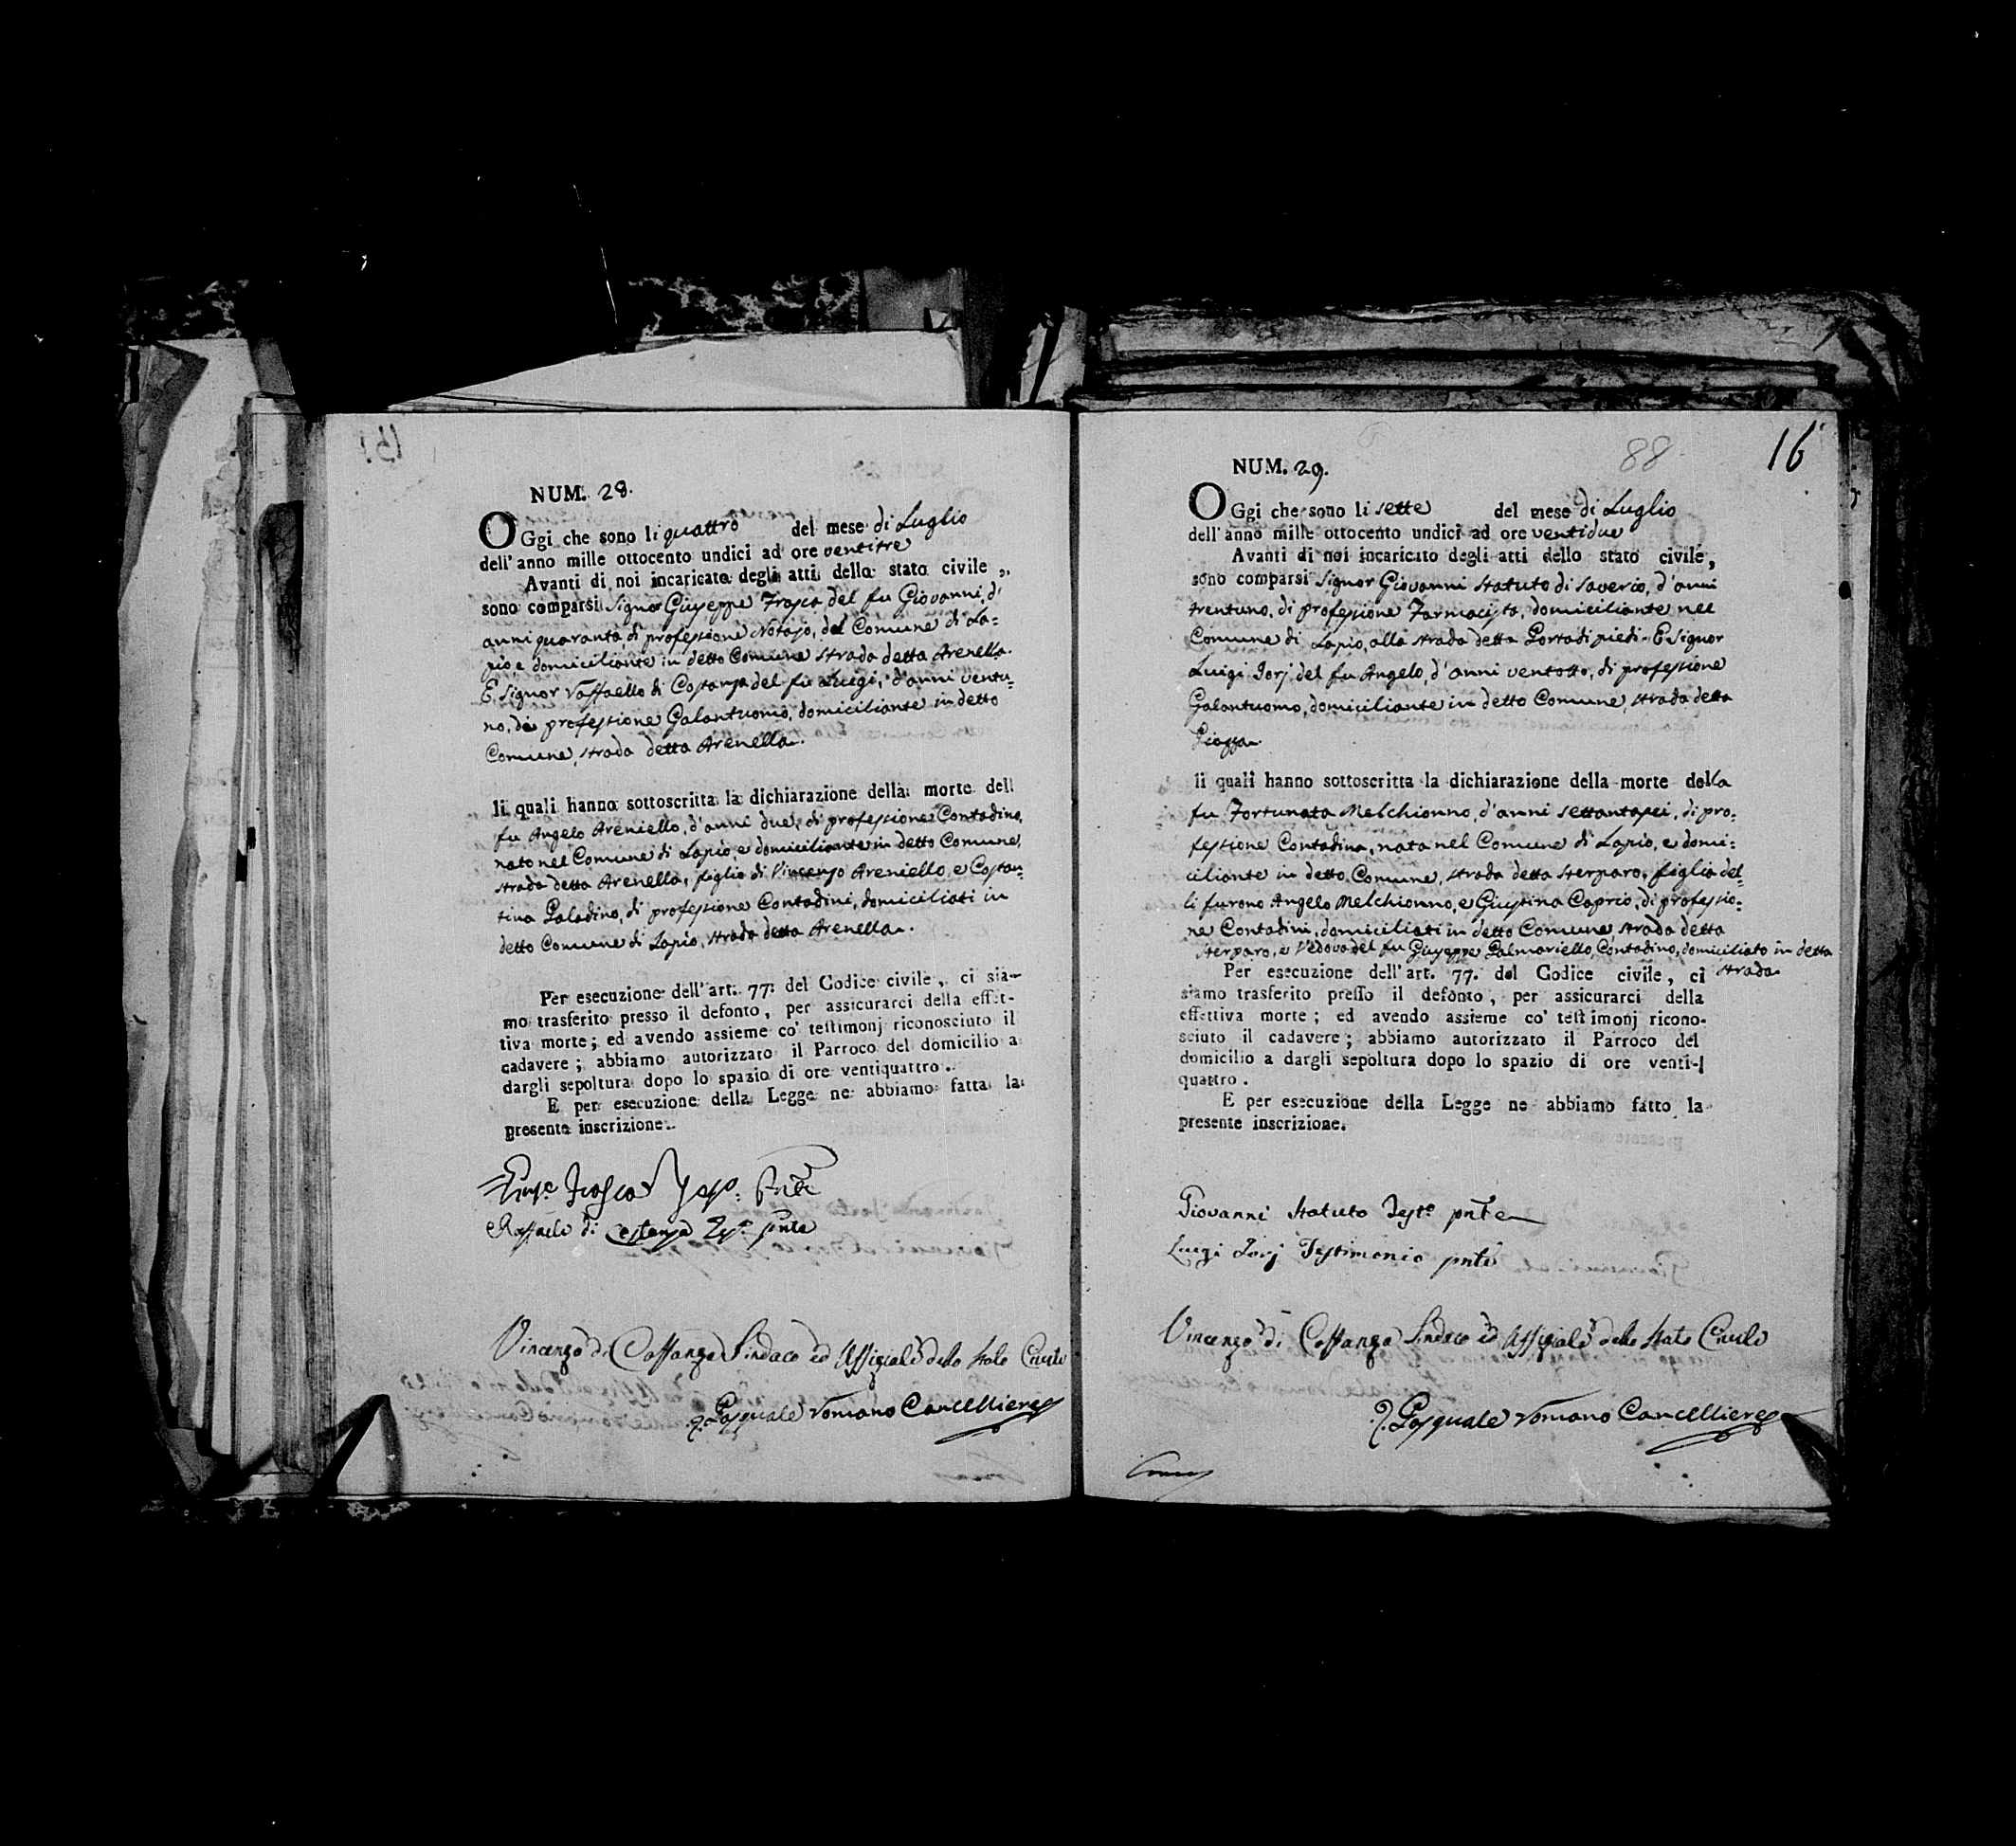 NUM. 28.
OGgi che sono li quattro del mese di Luglio
dell' anno mille ottocento undici ad ore ventitre
Avanti di noi incaricato degli atti dello stato civile,
sono comparsi Signor Giuseppe Frosca del fu Giovanni, d'
anni quaranta, di professione Notajo, del Comune di La=
pio e domiciliante in detto Comune strada detta Arenella.
E Signor Raffaello di Costanza del fu Luigi, d'anni ventu=
no, di professione Galantuomo, domiciliante in detto
Comune, strada detta Arenella.
li quali hanno sottoscritta la dichiarazione della morte dell
fu Angelo Areniello, d'anni due, di professione Contadino,
nato nel Comune di Lapio, e domiciliante in detto Comune,
strada detta Arenella, figlio di Vincenzo Areniello, e Costan=
tina Paladino, di professione Contadini, domiciliati in
detto Comune di Lapio, strada detta Arenella.
Per esecuzione dell' art. 77. del Codice civile, ci sia-
mo trasferito presso il defonto, per assicurarci della effet-
tiva morte; ed avendo assieme co' testimonj riconosciuto il
cadavere; abbiamo autorizzato il Parroco del domicilio a
dargli sepoltura dopo lo spazio di ore ventiquattro.
E per esecuzione della Legge ne abbiamo fatta la
presente inscrizione.
Raffaele di Costanza
Vincenzo di Costanzo Sindaco ed Uffiziale dello Stato Civile
Pasquale Romano Cancelliere
88
16
NUM. 29.
OGgi che sono li sette del mese di Luglio
dell' anno mille ottocento undici ad ore ventidue
Avanti di noi incaricato degli atti dello stato civile,
sono comparsi Signor Giovanni Statuto di Saverio, d'anni
trentuno, di professione Farmacista, domiciliante nel
Comune di Lapio, alla strada detta Portadipiedi. E Signor
Luigi Iorj del fu Angelo, d'anni ventotto, di professione
Galantuomo, domiciliante in detto Comune, strada detta
Piazza.
li quali hanno sottoscritta la dichiarazione della morte della
fu Fortunata Melchionno, d'anni settantasei, di pro=
fessione Contadina, nata nel Comune di Lapio, e domi=
ciliante in detto Comune, strada detta Sterparo, figlia del=
li furono Angelo Melchionno, e Giustina Caprio, di professio=
ne Contadini, domiciliati in detto Comune, strada detta
Sterparo, e Vedova del fu Giuseppe Palmariello, Contadino, domiciliato in detta
strada.
Per esecuzione dell' art. 77. del Codice civile, ci
siamo trasferito presso il defonto, per assicurarci della
effettiva morte; ed avendo assieme co' testimonj ricono-
sciuto il cadavere; abbiamo autorizzato il Parroco del
domicilio a dargli sepoltura dopo lo spazio di ore venti-
quattro.
E per esecuzione della Legge ne abbiamo fatto la
presente inscrizione.
Giovanni Statuto Testo pnte
Luigi Iorj Testimonio pnte
Vincenzo di Costanzo Sindaco ed Uffiziale dello Stato Civile
Pasquale Romano Cancelliere